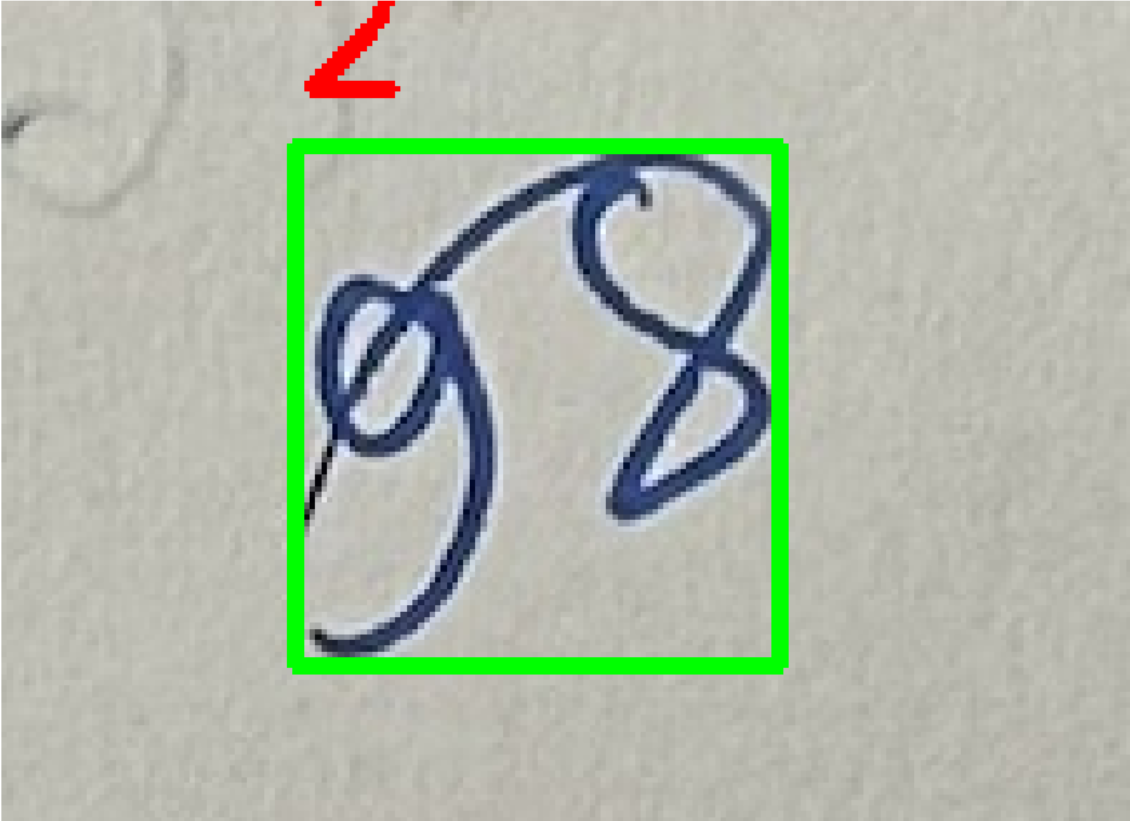 2
98